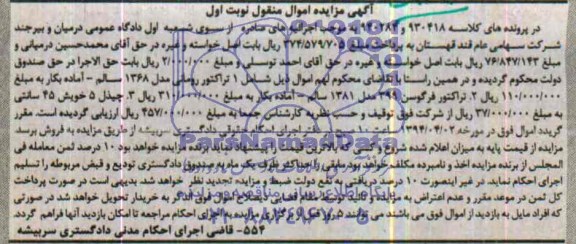 آگهی مزایده اموال منقول نوبت اول
در پرونده های کلاسه ۹۳۰۴۱۸ و به موجب اجرائیه های صادره از سوی شعبه اول دادگاه عمومی درمیان و بیرجند
شرکت سهامی عام قند قهستان به پرداخت مبلغ ۳۷۴/۵۷۹/۷۰۰ ریال بابت اصل خواسته و غیره در حق آقای محمدحسین درمیانی و
۷۶/۸۴۷/۱۴۳ ریال بابت اصل خواسته و غیره در حق آقای احمد توسلی و مبلغ ۲/۰۰۰/۰۰۰ ریال بابت حق الاجرا در حق صندوق
دولت محکوم گردیده و در همین راستا با تقاضای محکوم لهم اموال ذیل شامل ۱ تراکتور رومانی مدل ۱۳۶۸ سالم - آماده بکار به مبلغ
۱۱۰/۰۰۰/۰۰۰ ریال ۲. تراکتور فرگوسن ۳۹۹ مدل ۱۳۸۱ سالم - آماده بکار به مبلغ ۳۱۰/۰۰۰/۰۰۰ ریال ۳. جیدل ۵ خویش ۴۵ سانتی
به مبلغ ۳۷/۰۰۰/۰۰۰ ریال از شرکت فوق توقیف و حسب نظریه کارشناس جمعا به مبلغ ۴۵۷/۰۰۰/۰۰۰ ریال ارزیابی گردیده است. مقرر
گردید اموال فوق در مورخه ۱۳۹۴/۰۴/۰۲ دفتر اجرای احکام حقوقی دادگستری سربیشه از طریق مزایده به فروش برسد.
مزایده از قیمت پایه به میزان اعلام شده شروع و کسی که بالاترین قیمت را پیشنهاد نماید برنده مزایده خواهد بود ۱۰ درصد ثمن معامله فی
المجلس از برنده مزایده اخذ و نامبرده مکلف خواهد بود مابقی را حداکثر ظرف یک ماه به صندوق دادگستری تودیع و قبض مربوطه را تسلیم
اجرای احکام نماید، در غیر اینصورت ۱۰ درصد دریافتی به نفع دولت ضبط و مزایده تجدید نظر خواهد شد. بدیهی است در صورت پرداخت
کل ثمن در موعد مقرر و عدم اعتراض به مزایده و تائید توسط مقام قضایی ذیصلاح اموال فوق الذکر به خریدار تحویل خواهد شد. در صورتی
که افراد مایل به بازدید از اموال فوق می باشند می توانند ۵ روز قبل از برگزاری مزایده به اجرای احکام مراجعه تا امکان بازدید آنها فراهم گردد.
۵۵۴- قاضی اجرای احکام مدنی دادگستری سربیشه
ParsNamadData